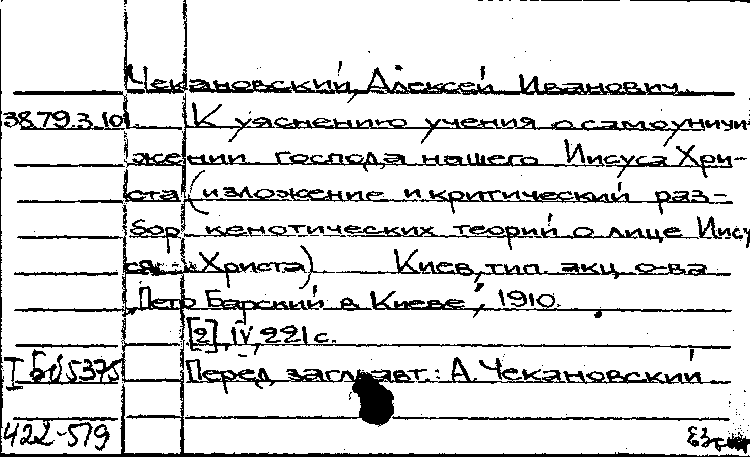 Чекановский, Алексей Иванович.
38.79.3.101. К уяснению учения о самоуничи
жении господа нашего Иисуса Хри-
ста (изложение и критический раз-
бор кенотических теорий о лице Иису
са Христа) Киев, тип. акц. о-ва
„Петр Барский в Киеве", 1910.
[2], IV, 221 с.
Перед загл. авт.: А. Чекановский
422-579